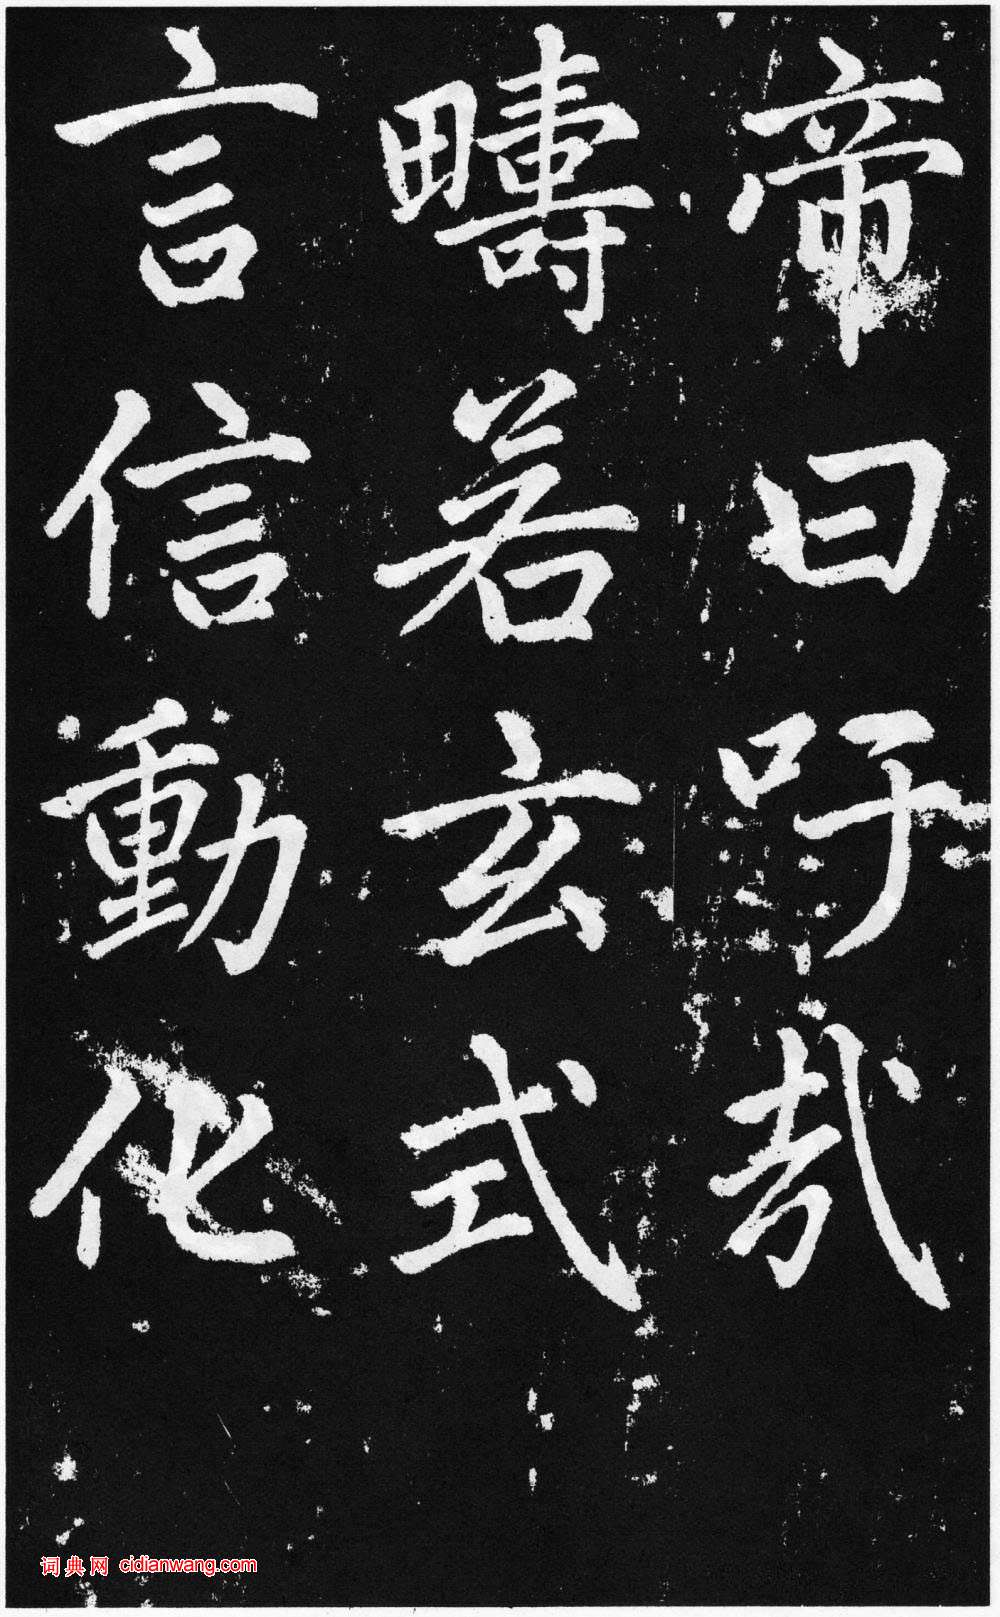 帝曰吁哉
疇若玄式
言信動化
词典网 cidianwang.com